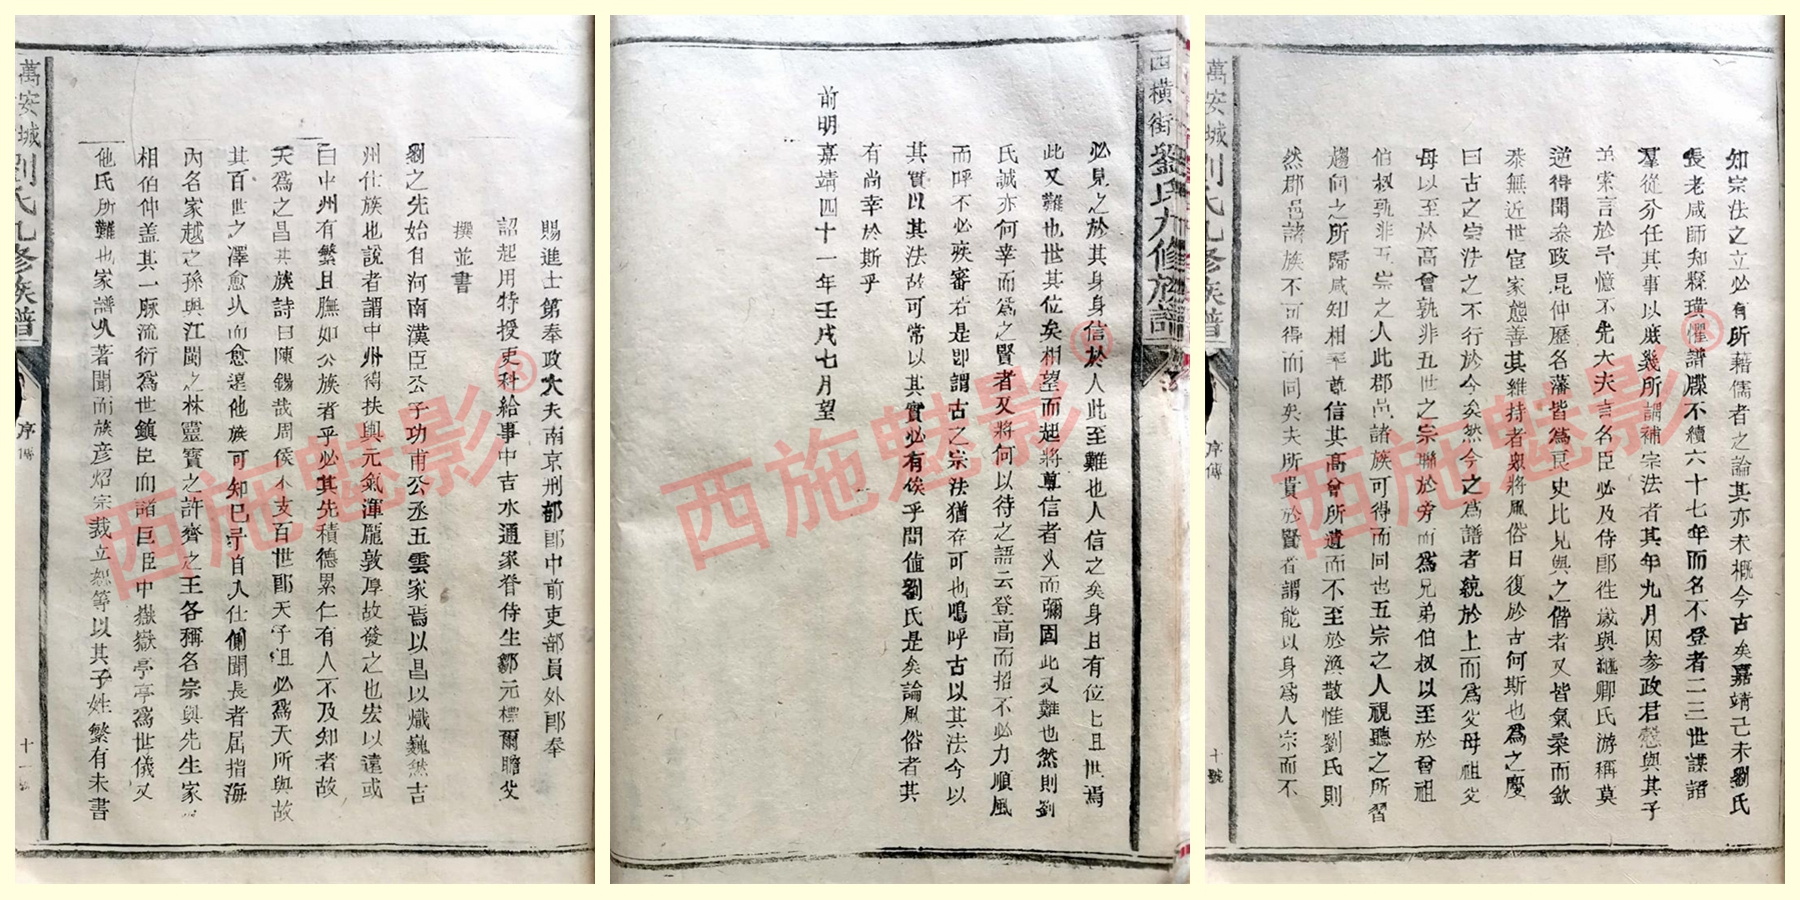 知宗法之立必有所藉儒者之論其亦未概今古矣嘉靖己未劉氏
長老咸師知縣璜懼譜牒不續六十七年而名不登者二三世諜諸
羣從分任其事以庶幾所謂補宗法者其年九月因參政君愨與其子
索言於予憶不先大夫言名臣必及侍郎徃歲與繼卿氏游稱莫
逆得聞叅政昆仲歷名藩皆為良史比見與之偕者又皆氣柔而欽
恭無近世宦家態善其維持者衆將風俗日復於古何斯也為之慶
曰古之宗法之不行於今矣然今之為譜者統於上而為父母祖父
母以至於高曾孰非五世之宗聯於旁而為兄弟伯叔以至於曾祖
伯叔孰非五宗之人此郡邑諸族可得而同也五宗之人視聽之所習
趨向之所歸咸知相率尊信其高曾所遺而不至於渙散惟劉氏則
然郡邑諸族不可得而同矣夫所貴於賢者謂能以身為人宗而不
萬安城劉氏九修族譜
序傳
十號
西橫街劉氏九修族譜
必見之於其身身信於人此至難也人信之矣身且有位七且世焉
此又難也世其位矣相望而起將尊信者久而彌固此又難也然則劉
氏誠亦何幸而為之賢者又將何以待之語云登高而招不必力順風
而呼不必疾審若是即謂古之宗法猶存可也嗚呼古以其法今以
其實以其法故可常以其實必有俟乎間值劉氏是矣論風俗者其
有尚幸於斯乎
前明嘉靖四十一年壬戌七月望
賜進士第奉政大夫南京刑部郎中前吏部員外郎奉
詔起用特授吏科給事中吉水通家眷侍生鄒元標爾瞻父
撰並書
劉之先始自河南漢臣公子功甫公丞五雲家焉以昌以熾巍然吉
州仕族也說者謂中州得扶輿元氣渾龐敦厚故發之也宏以遠或
曰中州有繁且膴如公族者乎必其先積德累仁有人不及知者故
天為之昌其族詩曰陳錫哉周侯不支百世郎天子詛必為天所與故
其百世之澤愈久而愈遠他族可知已予自入仕側聞長者屈指海
內名家越之孫與江閩之林靈寶之許齊之王各稱名宗與先生家
相伯仲盖其一脈流衍為世鎮臣而諸巨臣中嶽嶽亭亭為世儀又
他氏所難也家譜久著聞而族彥炤宗裁立恕等以其子姓繁有未書
萬安城劉氏九修族譜
序傳
十一號
西施魅影®
西施魅影®
西施魅影®